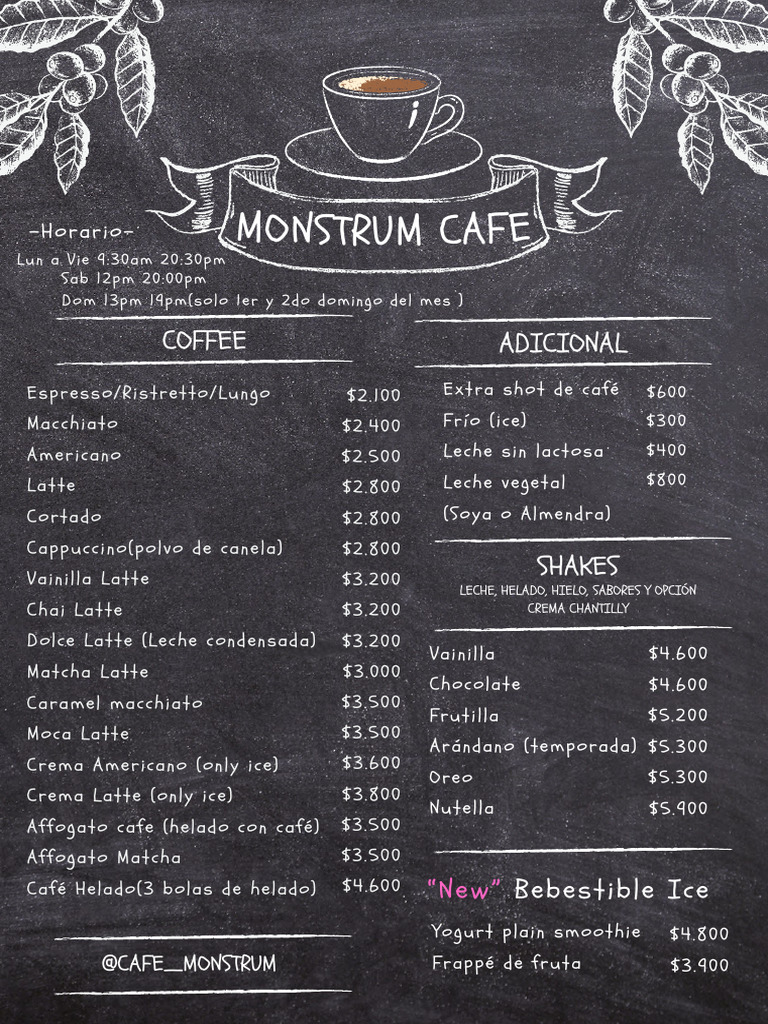 MONSTRUM CAFE
-Horario-
Lun a Vie 9:30am 20:30pm
Sab 12pm 20:00pm
Dom 13pm 19pm(solo 1er y 2do domingo del mes )
COFFEE
Espresso/Ristretto/Lungo $2.100
Macchiato $2.400
Americano $2.500
Latte $2.800
Cortado $2.800
Cappuccino(polvo de canela) $2.800
Vainilla Latte $3.200
Chai Latte $3.200
Dolce Latte (Leche condensada) $3.200
Matcha Latte $3.000
Caramel macchiato $3.500
Moca Latte $3.500
Crema Americano (only ice) $3.600
Crema Latte (only ice) $3.800
Affogato cafe (helado con café) $3.500
Affogato Matcha $3.500
Café Helado(3 bolas de helado) $4.600
@CAFE_MONSTRUM
ADICIONAL
Extra shot de café $600
Frío (ice) $300
Leche sin lactosa $400
Leche vegetal $800
(Soya o Almendra)
SHAKES
LECHE, HELADO, HIELO, SABORES Y OPCIÓN
CREMA CHANTILLY
Vainilla $4.600
Chocolate $4.600
Frutilla $5.200
Arándano (temporada) $5.300
Oreo $5.300
Nutella $5.900
"New" Bebestible Ice
Yogurt plain smoothie $4.800
Frappé de fruta $3.900